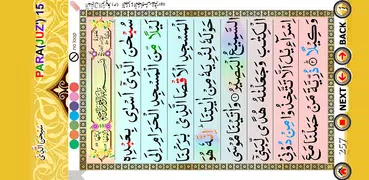 PARA(JUZ') 15
سُبْحٰنَ الَّذِیْ
no loop
سُبْحٰنَ الَّذِیْۤ اَسْرٰی بِعَبْدِهٖ
لَیْلًا مِّنَ الْمَسْجِدِ الْحَرَامِ اِلَی
الْمَسْجِدِ الْاَقْصَا الَّذِیْ بٰرَكْنَا
حَوْلَهٗ لِنُرِیَهٗ مِنْ اٰیٰتِنَا ؕ اِنَّهٗ هُوَ
السَّمِیْعُ الْبَصِیْرُ وَ اٰتَیْنَا مُوْسَی
الْكِتٰبَ وَ جَعَلْنٰهُ هُدًی لِّبَنِیْۤ
اِسْرَآءِیْلَ اَلَّا تَتَّخِذُوْا مِنْ دُوْنِیْ
وَكِیْلًا ذُرِّیَّةَ مَنْ حَمَلْنَا مَعَ
257
NEXT
BACK